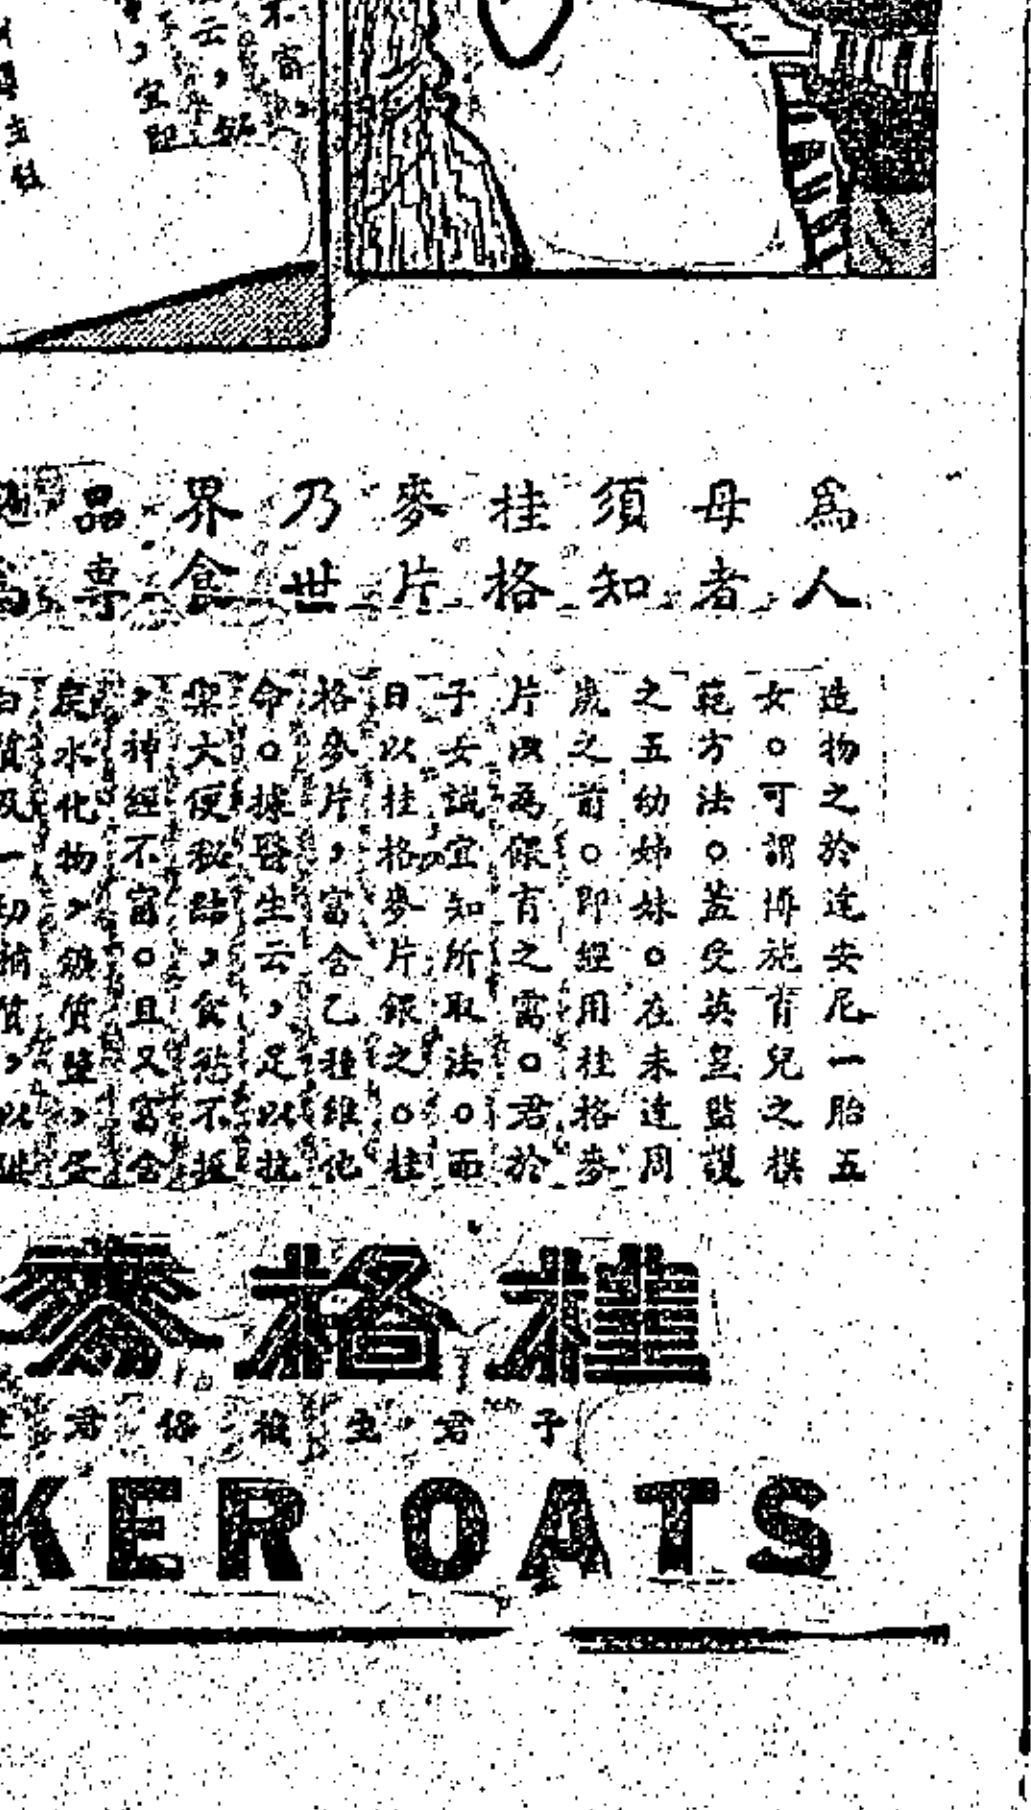 爲人
母者
須知
桂格
麥片
乃世
界食
品專
造物之於達安尼一胎五
女。可謂博施育兒之撰
範方法。蓋受英皇監護
之五幼姊妹。在未達周
歲之前。即經用桂格麥
片以爲餵育之需。君於
子女誠宜知所取法。而
日以桂格麥片餵之。桂
格麥片，富含乙種維他
命。據醫生云，足以抗
禦大便秘結，食慾不振
，神經不富。且又富含
炭水化物，鑛質鹽，蛋
白質及一切補質，以供
桂格麥
KER OATS